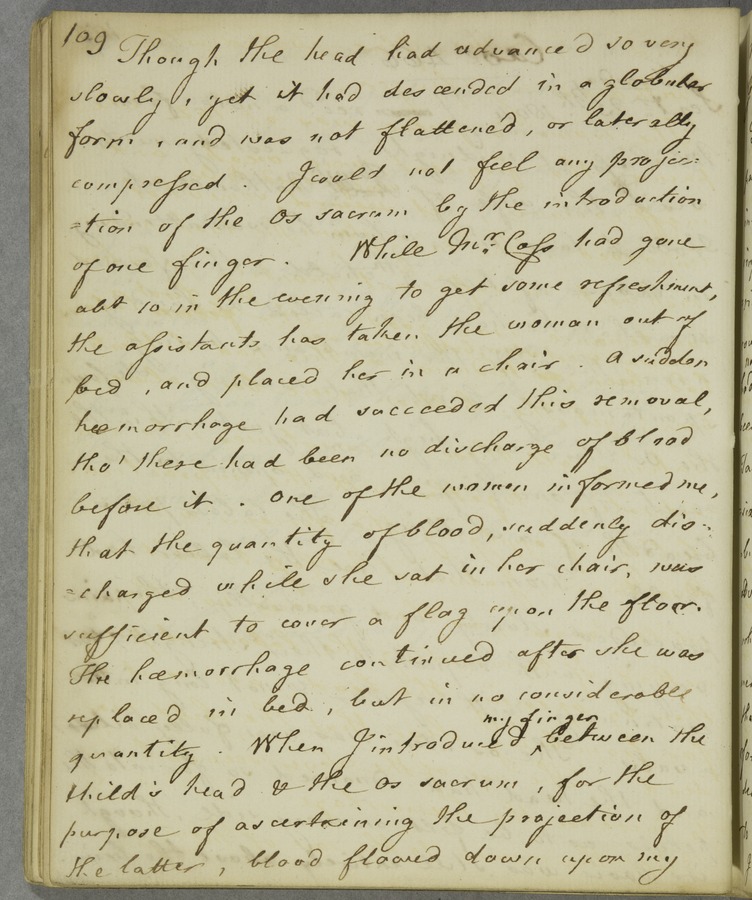 109
Though the head had advanced so very
slowly, yet it had descended in a globular
form, and was not flattened, or laterally
compressed. I could not feel any projec:
=tion of the Os sacrum by the introduction
of one finger. While Mr. Cass had gone
abt 10 in the evening to get some refreshment,
the assistants has taken the woman out of
bed, and placed her in a chair. A sudden
hœmorrhage had succeeded this removal,
tho' there had been no discharge of blood
before it. One of the women informed me,
that the quantity of blood, suddenly dis-:
=charged while she sat in her chair, was
sufficient to cover a flag upon the floor.
The hœmorrhage continued after she was
replaced in bed, but in no considerable
my finger
quantity. When I introduced ^ between the
child's head & the os sacrum, for the
purpose of ascertaining the projection of
the latter, blood flowed down upon my